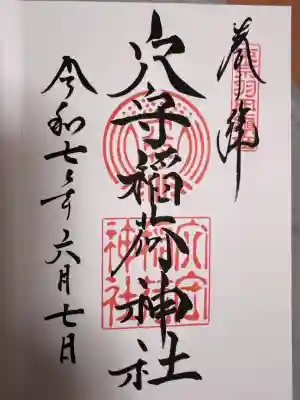 奉拝
穴守稲荷神社
穴守
稲荷
神社
令和七年六月七日